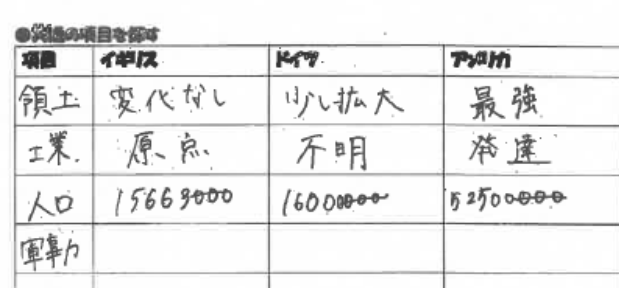 ●共通の項目を探す
項目 イギリス ドイツ アメリカ
領土 変化なし 少し拡大 最強
工業 原点 不明 発達
人口 15669000 16000000 52500000
軍事力